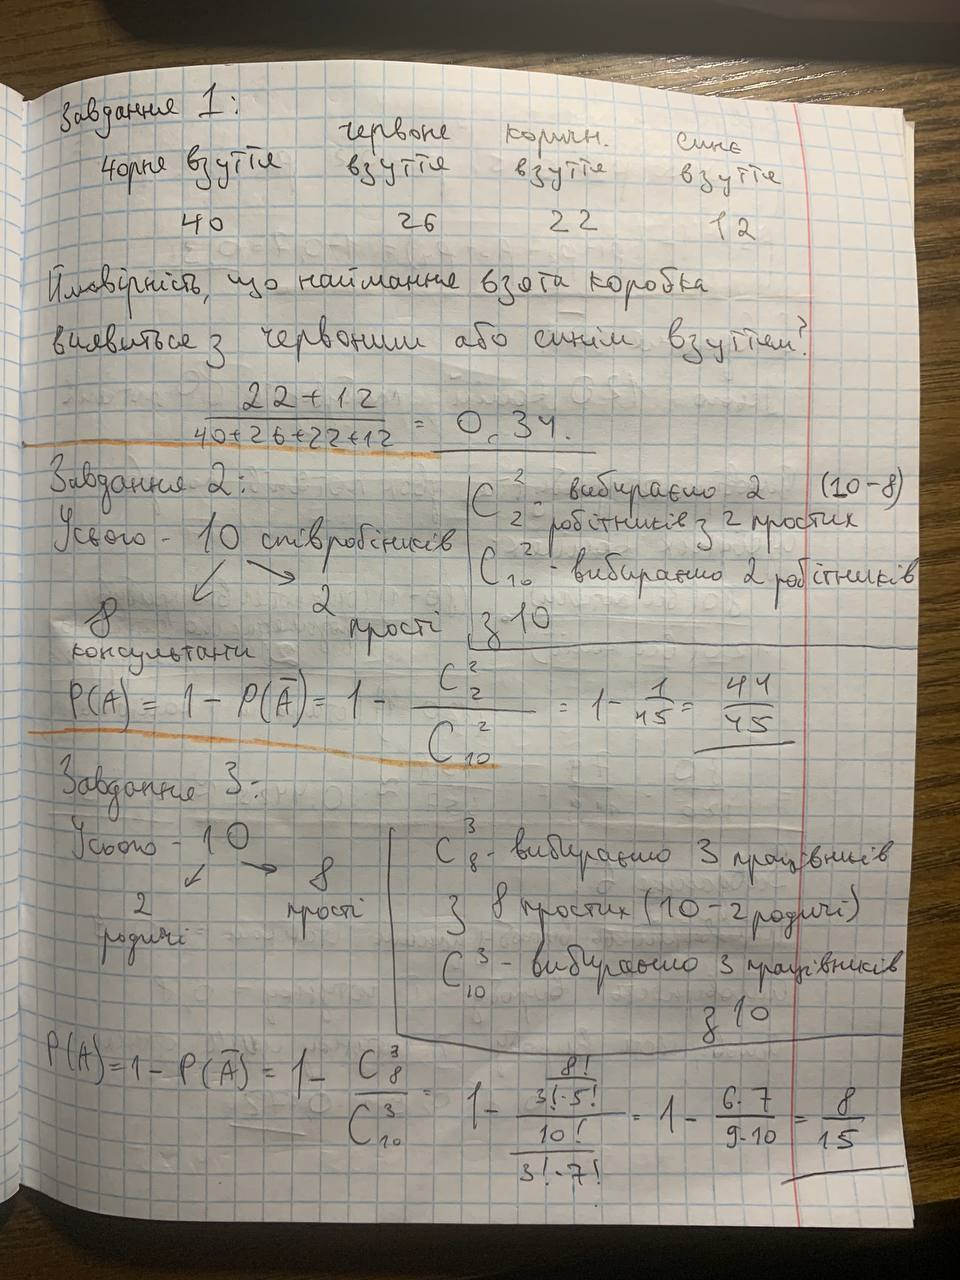 Завдання 1:
чорне взуття червоне взуття коричн. взуття синє взуття
40 26 22 12
Ймовірність, що найманне взята коробка
виявиться з червоним або синім взуттям?
22+12 / 40+26+22+12 = 0,34.
Завдання 2:
Усього - 10 співробіників
8 консультанти
2 прості
C₂² - вибираємо 2 (10-8)
робітників з 2 простих
C₁₀² - вибираємо 2 робітників
з 10
P(A) = 1 - P(Ā) = 1 - C₂² / C₁₀² = 1 - 1/45 = 44/45
Завдання 3:
Усього - 10
2 родичі
8 прості
C₈³ - вибираємо 3 працівників
з 8 простих (10-2 родичі)
C₁₀³ - вибираємо 3 працівників
з 10
P(A) = 1 - P(Ā) = 1 - C₈³ / C₁₀³ = 1 - (8! / 3!·5!) / (10! / 3!·7!) = 1 - 6·7 / 9·10 = 8/15